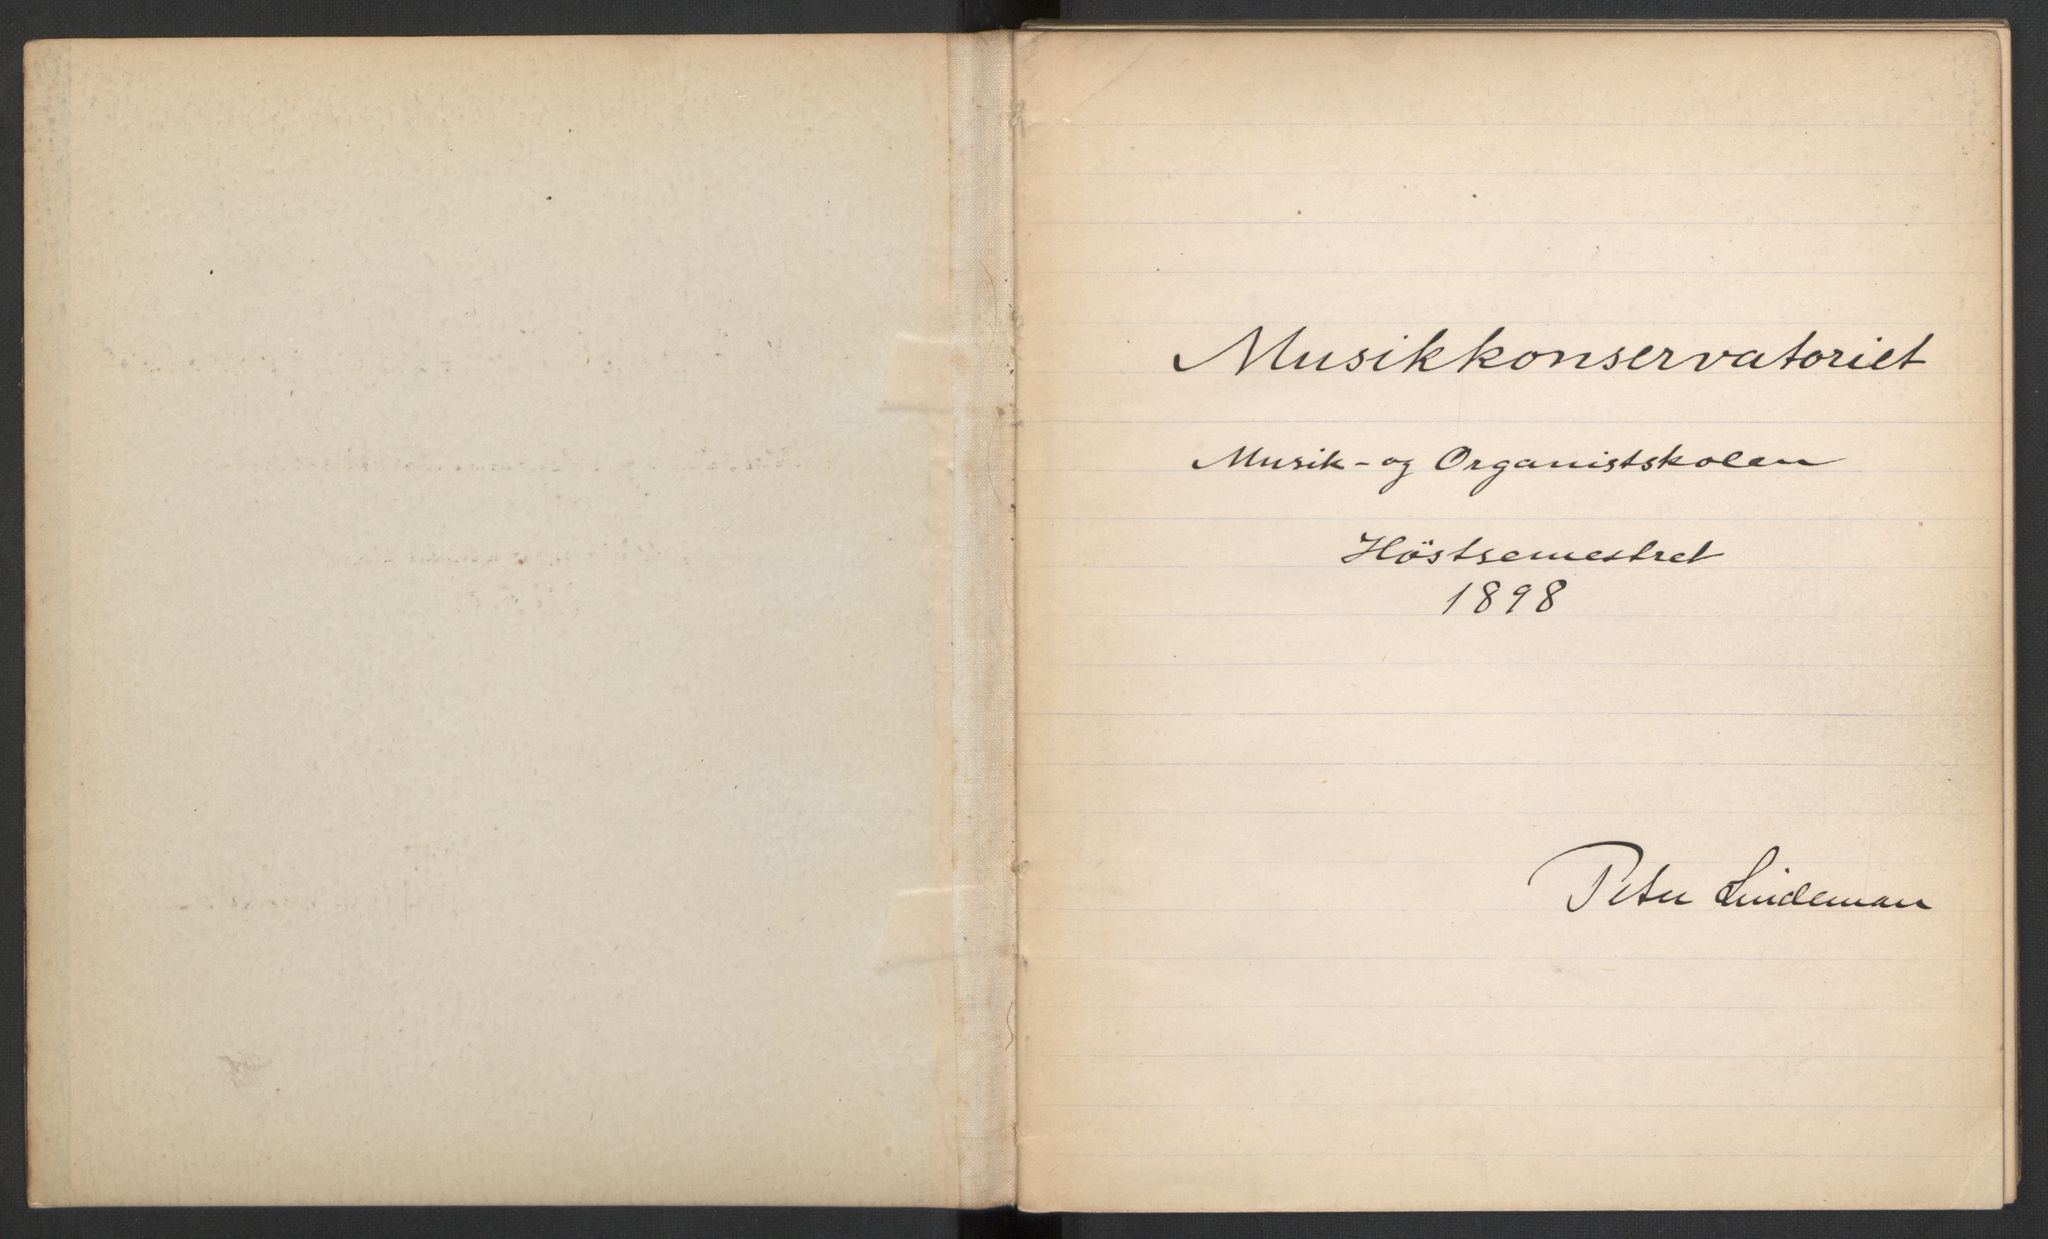 Musikkonservatoriet
Musik- og Organistskolen
Höstsemestret
1898
Peter Lindeman